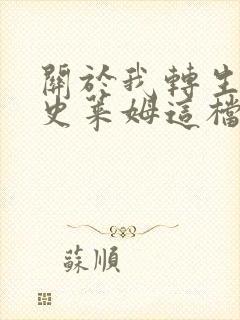 關於我轉生
史萊姆這檔
蘇順